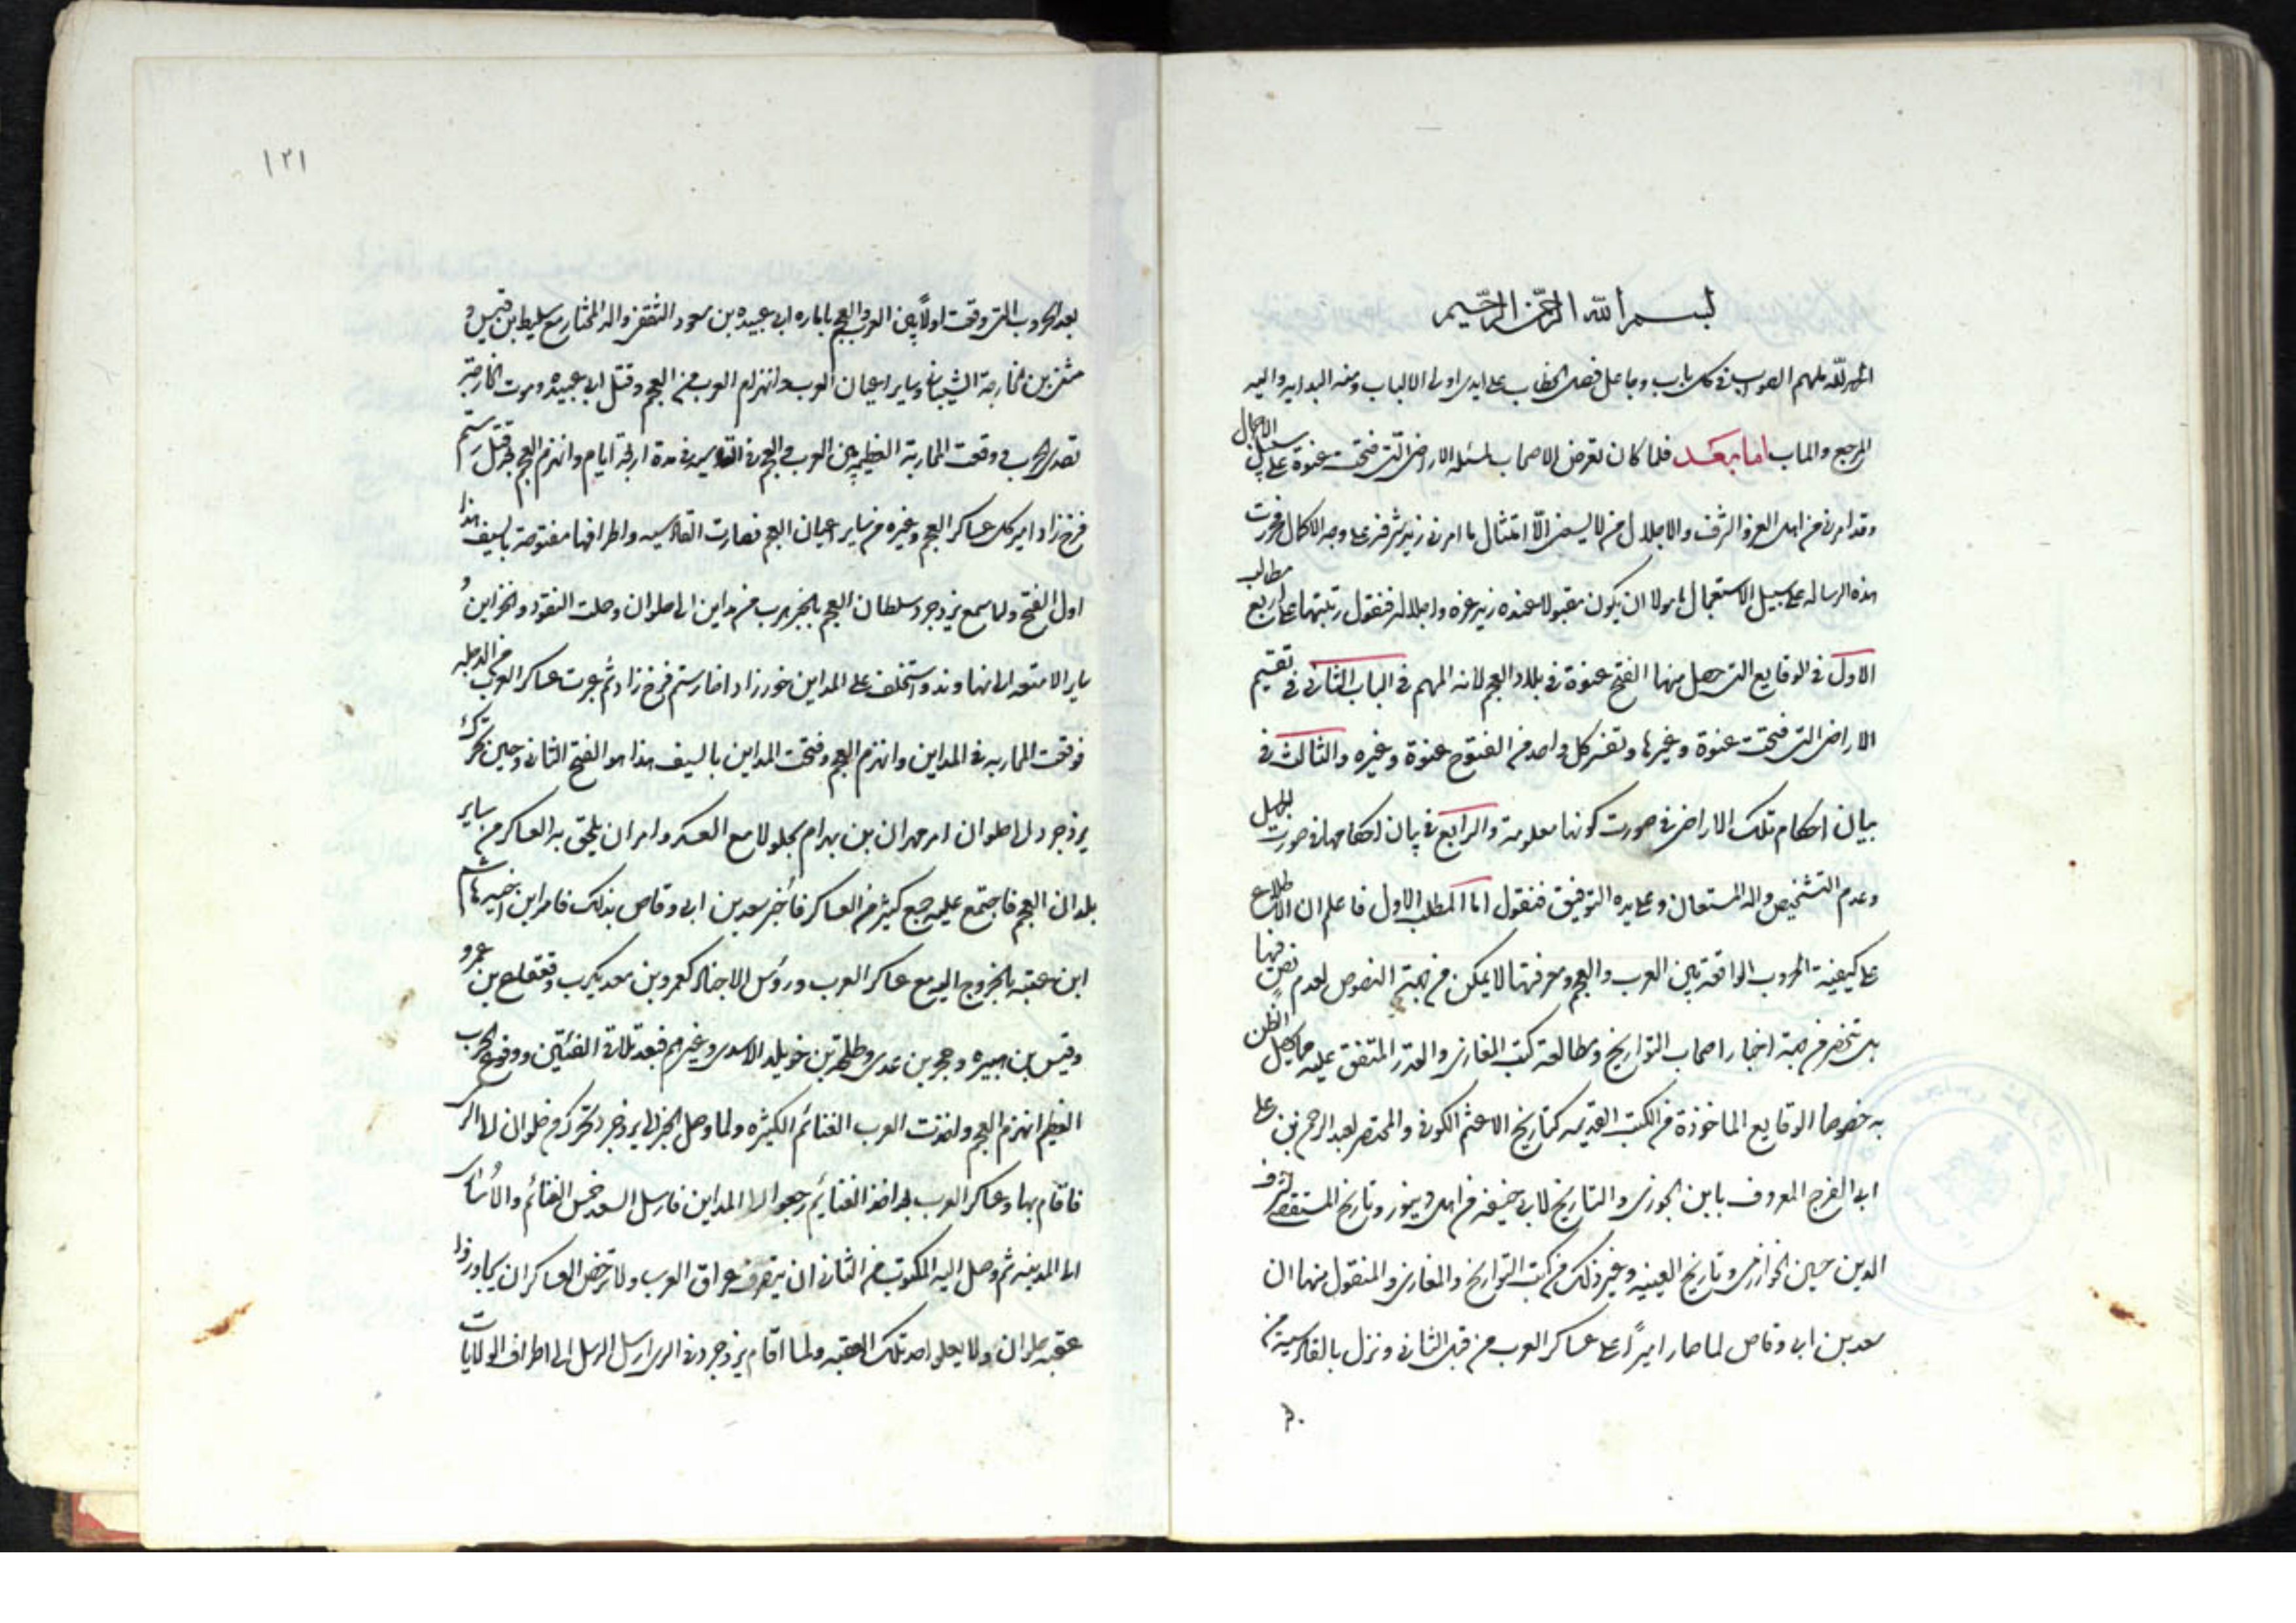 بسم الله الرحمن الرحيم
الحمد لله ملهم الصواب في كل باب وجاعل فصل الخطاب على ايدى اولى الالباب ومنه البدايه واليه
المرجع والماب اما بعد فلما كان تعرض الاصحاب لمسئله الاراضى التى فتحت عنوة على سبيل الاجمال
وقد امرنى من اهل العز والشرف والاجلال من لا يسعنى الا امتثال ما امرنى زيد شرفه على وجه الاكمال فحررت
هذه الرساله على سبيل الاستعجال مامولا ان يكون مقبولا عنده زيد عزه واجلاله فنقول رتبتها على اربع مطالب
الاول في الوقايع التى حصل منها الفتح عنوة في بلاد العجم لانه المهم في الباب الثانى في تقسيم
الاراضى التى فتحت عنوة وغيرها وتفسير كل واحد من الفتوح عنوة وغيره والثالث في
بيان احكام تلك الاراضى في صورت كونها معلومة والرابع في بيان احكامها في صورت الجهل
وعدم التشخيص والله المستعان وعلى يده التوفيق فنقول اما المطلب الاول فاعلم ان الاطلاع
على كيفية الحروب الواقعة بين العرب والعجم ومعرفتها لا يمكن من جهة النصوص لعدم نص فيها
بل تنحصر من جهة اخبار اصحاب التواريخ ومطالعة كتب المغازى والقدر المتفق عليه مما يحصل الظن
به خصوصا الوقايع الماخوذة من الكتب القديمه كتاريخ الاعثم الكوفى والمختصر لعبد الرحمن بن على
ابى الفرج المعروف بابن الجوزى والتاريخ لابى حنيفه من اهل دينور وتاريخ المستقصى لشرف
الدين حسين الخوارزمى وتاريخ العينيه وغير ذلك من كتب التواريخ والمغازى والمنقول منها ان
سعد بن ابى وقاص لما صار اميرًا على عساكر العرب من قبل الثانى ونزل بالقادسية من
١٢١
بعد الحروب التى وقعت اولًا بين العرب والعجم باماره ابى عبيده بن مسعود الثقفى والد المختار مع سليط بن قيس و
مثنى بن حارثة الشيبانى وساير اعيان العرب وانهزام العرب من العجم وقتل ابى عبيده وموت
تصدى الحرب ووقعت المحاربة العظيمه بين العرب والعجم في القادسيه في مدة اربعة ايام وانهزم العجم وقتل رستم
فرخ زاد امير كل عساكر العجم وغيره من ساير اعيان العجم فصارت القادسيه واطرافها مفتوحة بالسيف هذا
اول الفتح ولما سمع يزدجرد سلطان العجم بالخبر هرب من مداين الى حلوان وحملت النقود والخزاين و
ساير الامتعه الى نهاوند واستخلف على المداين خورزاد اخا رستم فرخ زاد ثم عبرت عساكر العرب من الدجله
فوقعت المحاربه في المداين وانهزم العجم وفتحت المداين بالسيف هذا هو الفتح الثانى وحين تحرك
يزدجرد الى حلوان امر مهران بن بهرام بجلولا مع العسكر وامر ان يلحق به العساكر من ساير
بلدان العجم فاجتمع عليه جمع كثير من العساكر فاخبر سعد بن ابى وقاص بذلك فامر ابن اخيه هاشم
ابن عتبه بالخروج اليه مع عساكر العرب ورؤس الاجناد كعمرو بن معديكرب وقعقاع بن عمرو
وقيس بن هبيره وحجر بن عدى وطلحة بن خويلد الاسدى وغيرهم فبعد تلاقى الفئتين ووقوع الحرب
العظيم انهزم العجم واخذت العرب الغنائم الكثيره ولما وصل الخبر الى يزدجرد تحرك من حلوان الى الرى
فاقام بها وعساكر العرب بعد اخذ الغنايم رجعوا الى المداين فارسل السعد خمس الغنائم والاسارى
الى المدينه ثم وصل اليه المكتوب من الثانى ان يتصرف عراق العرب ولا ترخص العساكر ان يجاوزوا
عقبه حلوان ولا يعلى احد تلك العقبه ولما اقام يزدجرد في الرى ارسل الرسل الى اطراف الولايات